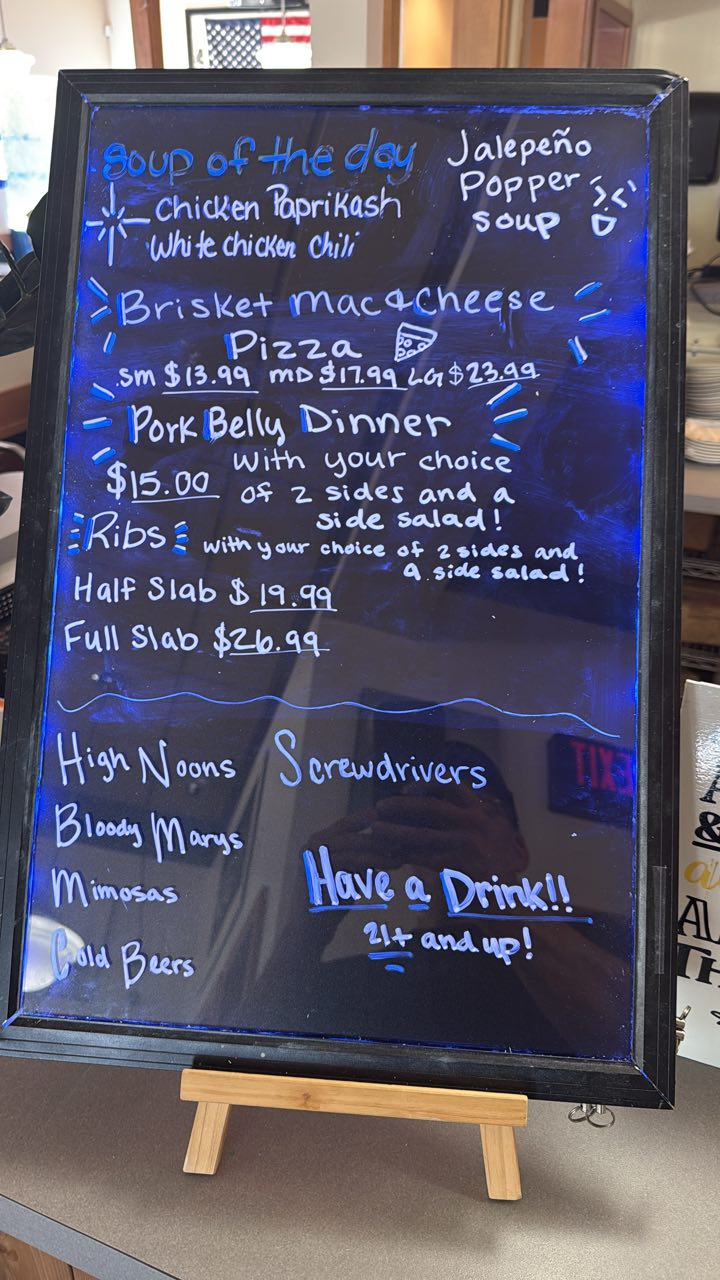 Soup of the day
Chicken Paprikash
White chicken Chili
Jalepeño
Popper
soup
Brisket Mac & Cheese
Pizza
SM $13.99 MD $17.99 LG $23.99
Pork Belly Dinner
$15.00 with your choice
of 2 sides and a
side salad!
Ribs with your choice of 2 sides and
a side salad!
Half Slab $19.99
Full Slab $26.99
High Noons Screwdrivers
Bloody Marys
Mimosas
Cold Beers
Have a Drink!!
21+ and up!
EXIT